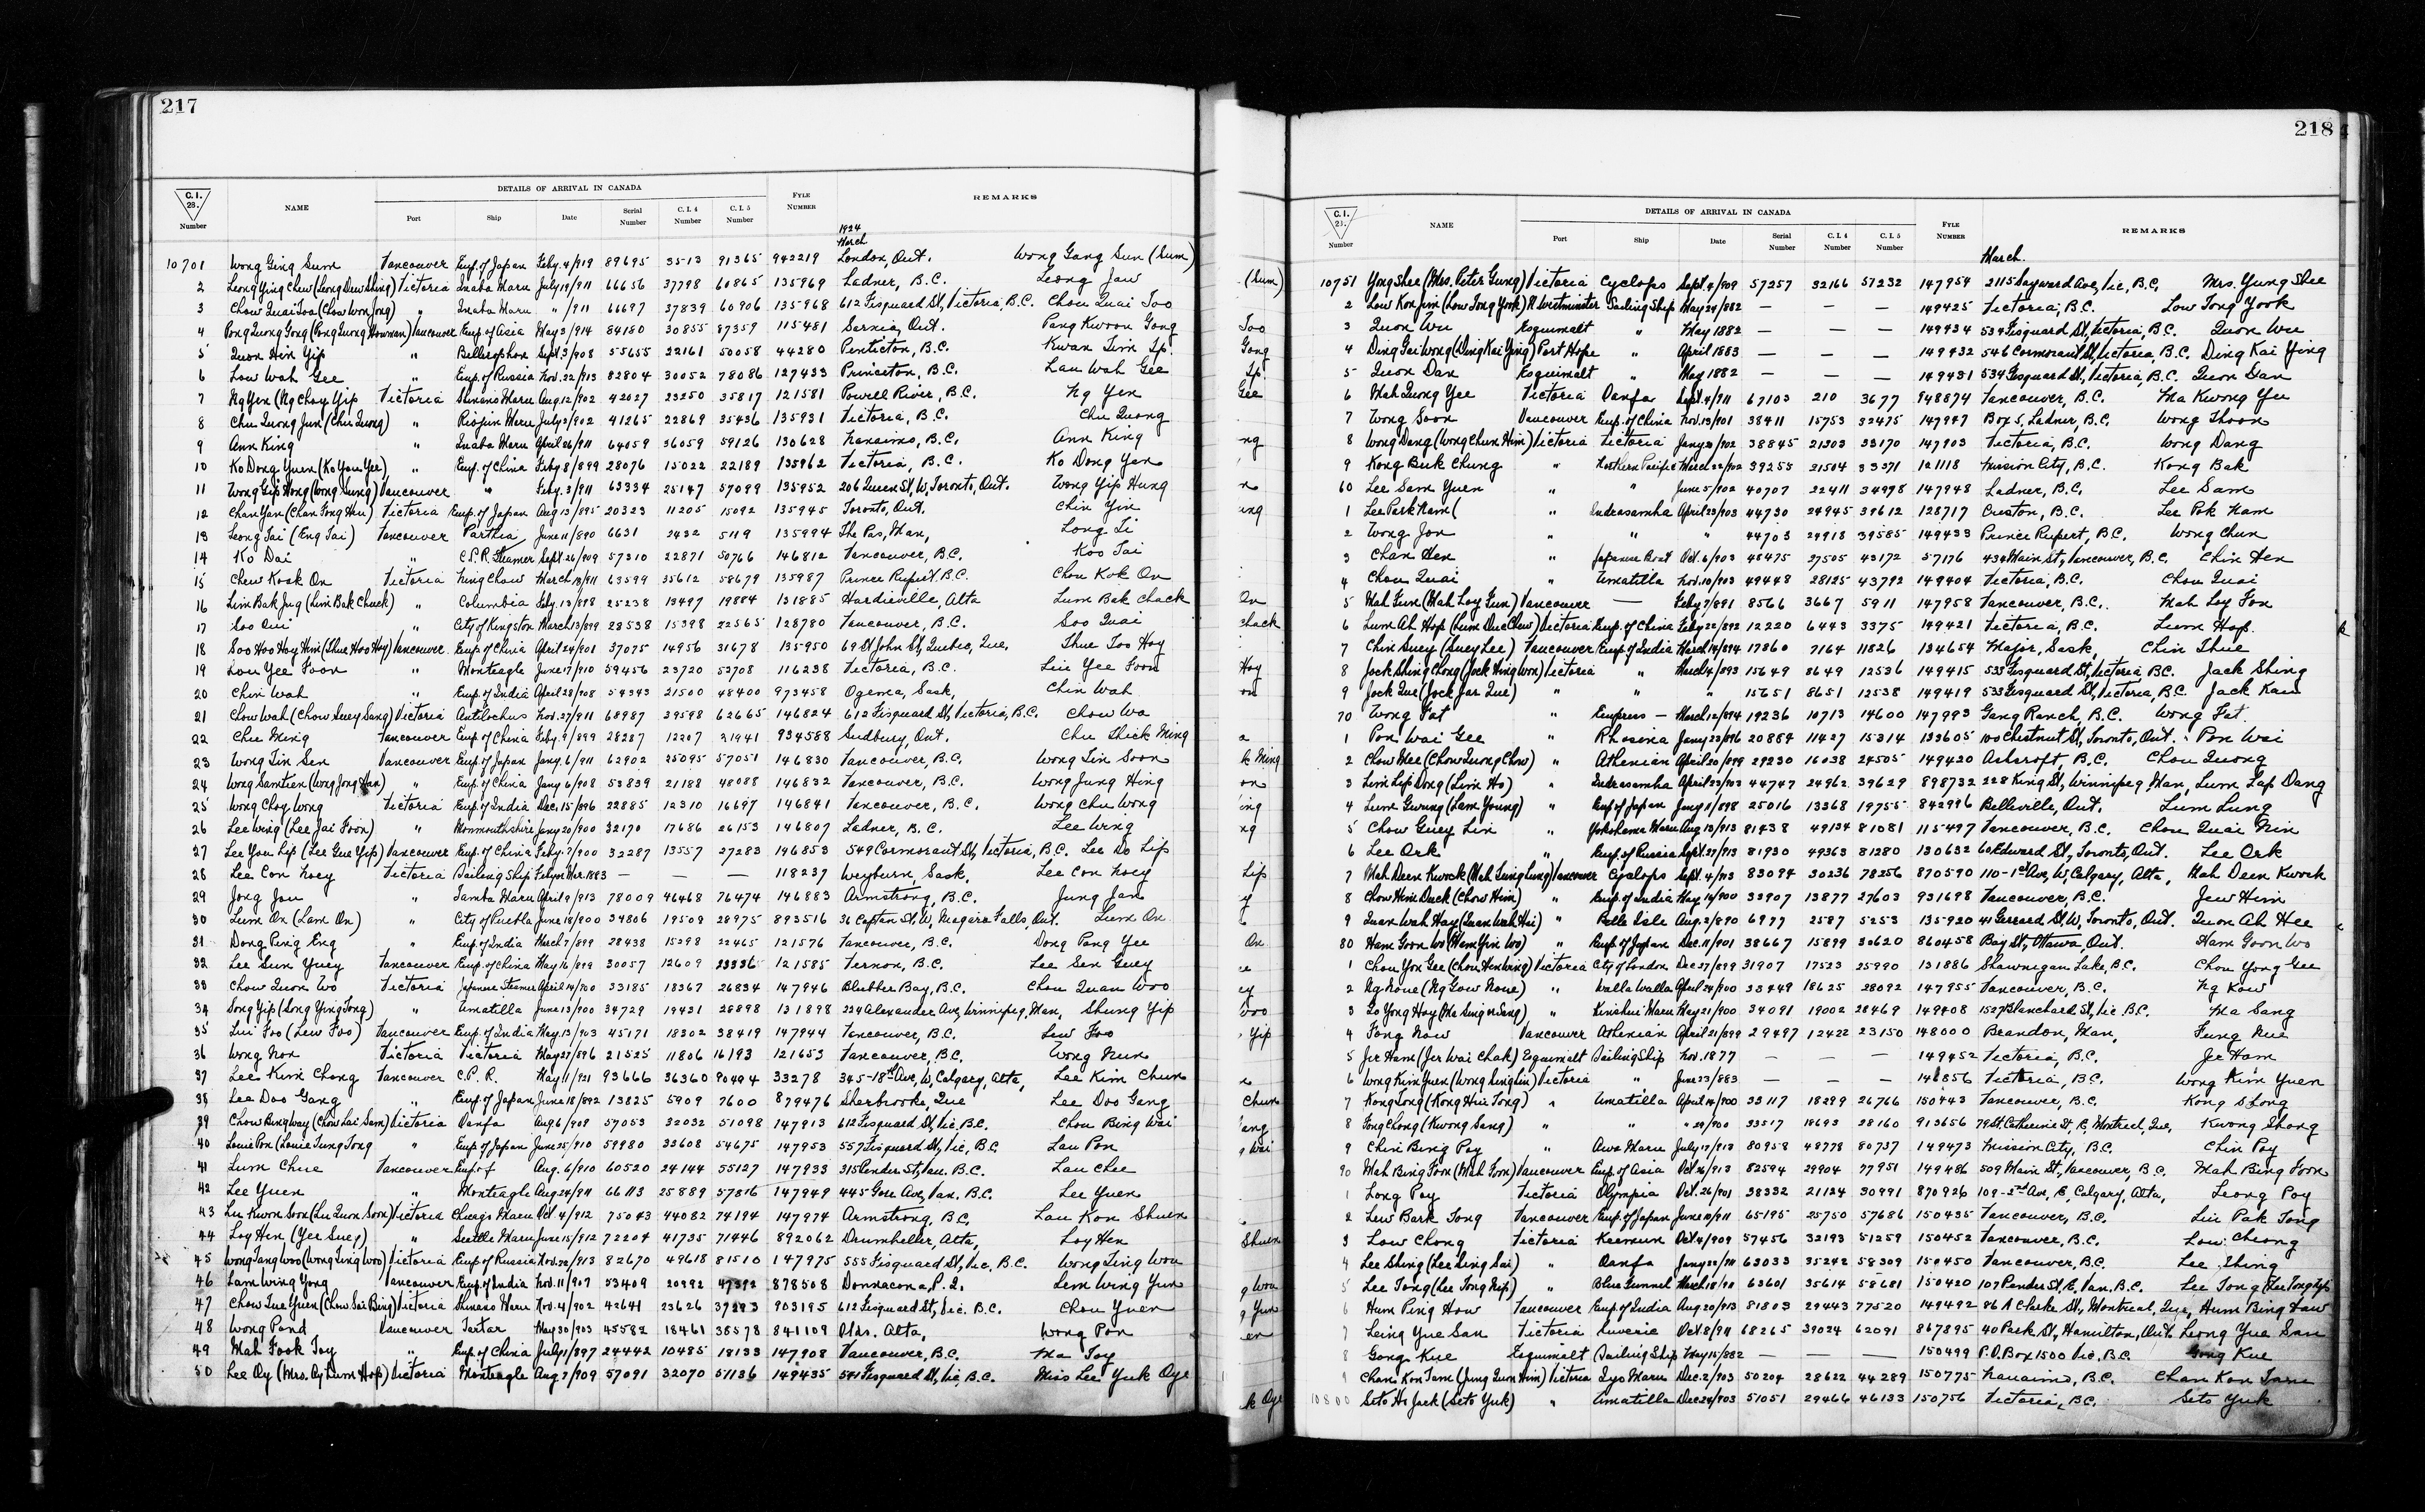 217
C.I. 28. Number NAME DETAILS OF ARRIVAL IN CANADA FYLE NUMBER REMARKS
Port Ship Date Serial Number C.I.4 Number C.I.5 Number
1924
March
10701 Wong Ging Sum Vancouver Emp. of Japan Feby. 4/919 89695 3513 91365 942219 London, Ont. Wong Gang Sun (Sum)
2 Leong Ying Chew (Leong Dew Shing) Victoria Inaba Maru July 19/911 66656 37798 60865 135969 Ladner, B.C. Leong Jaw
3 Chow Quai Too (Chow Won Jong) " Inaba Maru " /911 66697 37839 60906 135968 612 Fisguard St, Victoria, B.C. Chou Quai Too
4 Pong Quong Gong (Pong Quong Howman) Vancouver Emp. of Asia May 3/914 84180 30855 87359 115481 Sarnia, Ont. Pang Kwoon Gong
5 Quon Hin Yip " Bellerophon Sept. 3/908 55655 22161 50058 44280 Penticton, B.C. Kwan Tim Ip.
6 Low Wah Gee " Emp. of Russia Nov. 22/913 82804 30052 78086 127433 Princeton, B.C. Lau Wah Gee
7 Ng Yen (Ng Choy Yip Victoria Shinano Maru Aug. 12/902 42027 23250 35817 121581 Powell River, B.C. Ng Yen
8 Chu Quong Jun (Chu Quong) " Riojun Maru July 3/902 41265 22869 35436 135931 Victoria, B.C. Chu Quong
9 Ann King " Inaba Maru April 26/911 64059 36059 59126 130628 Nanaimo, B.C. Ann King
10 Ko Dong Yuen (Ko You Yee) " Emp. of China Feby. 8/899 28076 15022 22189 135962 Victoria, B.C. Ko Dong Yen
11 Wong Gip Hong (Wong Sung) Vancouver " Feby. 3/911 63334 25147 57099 135952 206 Queen St, W, Toronto, Ont. Wong Yip Hung
12 Chan Yan (Chan Fong Hen) Victoria Emp. of Japan Aug 13/895 20323 11205 15092 135945 Toronto, Ont. Chin Yin
13 Leong Tai (Eng Tai) Vancouver Parthia June 11/890 6631 2432 5119 135994 The Pas, Man, Long Ti
14 Ko Dai " C.P.R. Steamer Sept. 26/909 57310 22871 50766 146812 Vancouver, B.C. Koo Tai
15 Chew Kook On Victoria Ning Chow March 18/911 63599 35612 58679 135987 Prince Rupert, B.C. Chou Kok On
16 Lim Bak Jug (Lim Bak Chuck) " Columbia Feby. 13/898 25238 13497 19884 131885 Hardieville, Alta Lum Bak Chack
17 Soo Qui " City of Kingston March 13/899 28538 15398 22565 128780 Vancouver, B.C. Soo Quai
18 Soo Hoo Hoy Him (Shue Hoo Hoy) Vancouver Emp. of China April 24/901 37075 14956 31678 135950 69 St John St, Quebec, Que, Shue Too Hoy
19 Lou Yee Foon " Monteagle June 17/910 59456 23720 52708 116238 Victoria, B.C. Liu Yee Foon
20 Chin Wah " Emp. of India April 28/908 54343 21500 48400 973458 Ogema, Sask, Chin Wah
21 Chow Wah (Chow Suey Sang) Victoria Antilochus Nov. 27/911 68987 39598 62665 146824 612 Fisguard St, Victoria, B.C. Chow Wa
22 Chu Ming Vancouver Emp. of China Feby. 9/899 28287 12207 21941 934588 Sudbury, Ont. Chu Shick Ming
23 Wong Tin Sen Vancouver Emp. of Japan Jany. 6/911 62902 25095 57051 146830 Vancouver, B.C. Wong Tin Soon
24 Wong Sam Tien (Wong Jong Han) " Emp. of China Jany 6/908 53839 21188 48088 146832 Vancouver, B.C. Wong Jung Hing
25 Wong Choy Wong Victoria Emp. of India Dec. 15/896 22885 12310 16697 146841 Vancouver, B.C. Wong Chu Wong
26 Lee Wing (Lee Jai Foon) " Monmouthshire Jany 20/900 32170 17686 26153 146807 Ladner, B.C. Lee Wing
27 Lee You Lip (Lee Gue Yip) Vancouver Emp. of China Feby. 7/900 32287 13557 27283 146853 549 Cormorant St, Victoria, B.C. Lee Do Lip
28 Lee Con Noey Victoria Sailing Ship Feby or Mar. 1883 — — — 118237 Weyburn, Sask. Lee Con Noey
29 Jong Jan " Tamba Maru April 9/913 78009 46468 76474 146883 Armstrong, B.C. Jung Jan
30 Lum On (Lam On) " City of Puebla June 18/900 34806 19509 28975 893516 36 Captan St, W, Niagara Falls, Ont. Lum On
31 Dong Ping Eng " Emp. of India March 7/899 28438 15298 22465 121576 Vancouver, B.C. Dong Pang Yee
32 Lee Sun Yuey Vancouver Emp. of China May 16/899 30057 12609 23336 121585 Vernon, B.C. Lee Sen Guey
33 Chow Quon Wo Victoria Japanese Steamer April 14/900 33185 18367 26834 147946 Blubber Bay, B.C. Chou Quan Woo
34 Song Yip (Song Ying Tong) " Amatilla June 13/900 34729 19431 28898 131898 224 Alexander Ave, Winnipeg, Man, Shung Yip
35 Lui Foo (Lew Foo) Vancouver Emp. of India May 13/903 45171 18302 38419 147944 Vancouver, B.C. Lew Foo
36 Wong Non Victoria Victoria May 27/896 21525 11806 16193 121653 Vancouver, B.C, Wong Nun
37 Lee Kim Chong Vancouver C.P.R. May 11/921 93666 36360 90494 33278 345-18th Ave, W, Calgary, Alta, Lee Kim Chun
38 Lee Doo Gang " Emp. of Japan June 18/892 13825 5909 7600 879476 Sherbrooke, Que Lee Doo Gang
39 Chow Bing Way (Chow Lai Sam) Victoria Oanfa Aug 6/909 57053 32032 51098 147913 612 Fisguard St, Vic, B.C. Chou Bing Wai
40 Louie Pon (Louie Tung Tong " Emp. of Japan June 25/910 59980 33608 54675 147953 557 Fisguard St, Vic, B.C Lau Pon
41 Lum Chue Vancouver Emp. of Aug. 6/910 60520 24144 55127 147933 315 Pender St, Van. B.C. Lau Chee
42 Lee Yuen " Monteagle Aug 24/911 66113 25889 57816 147949 445 Gore Ave, Van. B.C. Lee Yuen
43 Lu Kwon Soon (Lu Quon Soon) Victoria Chicago Maru Oct. 4/912 75043 44082 74194 147974 Armstrong, B.C, Lau Kon Shuen
44 Loy Hen (Yee Suey) " Seattle Maru June 15/912 72204 41735 71446 892062 Drumheller, Alta, Loy Hen
45 Wong Tang Woo (Wong Ting Woo) Victoria Emp of Russia Nov. 22/913 82670 49618 81510 147975 555 Fisguard St, Vic, B.C. Wong Ting Wou
46 Lam Wing Yong Vancouver Emp. of India Nov. 11/907 53409 20992 47392 878508 Donnacona, P.Q. Lem Wing Yun
47 Chow Tue Yuen (Chow Sai Bing) Victoria Shinano Maru Nov. 4/902 42641 23626 37283 903195 612 Fisguard St, Vic. B.C. Chou Yuen
48 Wong Pond Vancouver Tartar May 30/903 45582 18461 38578 841109 Olds. Alta, Wong Pon
49 Mah Fook Toy " Emp. of China July 1/897 24442 10485 18133 147908 Vancouver, B.C. Ma Toy
50 Lee Oy (Mrs. Oy Lum Hop) Victoria Monteagle Aug 7/909 57091 32070 51136 149435 541 Fisguard St, Vic, B.C. Miss Lee Yuk Oye
218
C.I. 28. Number NAME DETAILS OF ARRIVAL IN CANADA FYLE NUMBER REMARKS
Port Ship Date Serial Number C.I.4 Number C.I.5 Number
March.
10751 Yong Shee (Mrs. Peter Gung) Victoria Cyclops Sept. 4/909 57257 32166 51232 147954 2115 Sayward Ave, Vic, B.C, Mrs. Yung Shee
2 Low Kon Jim (Low Tong York) N. Westminster Sailing Ship May 24/882 — — 149425 Victoria, B.C. Low Tong Yook
3 Quon Wu Esquimalt " May 1882 — — — 149434 534 Fisguard St, Victoria, B.C. Quon Wu
4 Ding Gai Wong (Ding Kai Ying) Port Hope " April 1883 — — — 149432 546 Cormorant St, Victoria, B.C. Ding Kai Ying
5 Quon Dan Esquimalt " May 1882 — — — 149431 534 Fisguard St, Victoria, B.C. Quon Dan
6 Mah Quong Yee Victoria Oanfa Sept. 4/911 67103 210 3677 948874 Vancouver, B.C. Ma Kwong Yee
7 Wong Soon Vancouver Emp. of China Nov. 13/901 38411 15753 32475 147947 Box 5, Ladner, B.C, Wong Thoon
8 Wong Dang (Wong Chun Him) Victoria Victoria Jany 3/902 38845 21303 33170 147903 Victoria, B.C. Wong Dang
9 Kong Buk Chung " Northern Pacific March 22/902 39255 21504 33371 121118 Mission City, B.C. Kong Bak
60 Lee Sam Yuen " " June 5/902 40707 22411 34978 147948 Ladner, B.C, Lee Sam
1 Lee Park Nam ( " Indrasamha April 23/903 44730 24945 39612 128717 Creston, B.C. Lee Pok Nam
2 Wong Jon " " " 44703 24918 39585 149433 Prince Rupert, B.C. Wong Chun
3 Chan Hen " Japanese Boat Oct. 6/903 48475 27505 43172 57176 434 Main St, Vancouver, B.C, Chin Hen
4 Chou Quai " Umatilla Nov. 10/903 49448 28125 43792 149404 Victoria, B.C. Chou Quai
5 Mah Fun (Mah Loy Fun) Vancouver — Feby 7/891 8566 3667 5911 147958 Vancouver, B.C. Mah Loy Fon
6 Lum Ah Hop (Lum Due Chew) Victoria Emp. of China Feby 22/892 12220 6443 3375 149421 Victoria, B.C, Lum Hop.
7 Chin Suey (Suey Lee) Vancouver Emp. of India March 14/894 17860 7164 11826 134654 Major, Sask, Chin Thue
8 Jock Shing Chong (Jock Hing Won) Victoria " March 4/893 15649 8649 12536 149415 535 Fisguard St, Victoria B.C. Jack Shing
9 Jock Que (Jock Jar Que) " " " 15651 8651 12538 149419 533 Fisguard St, Victoria, B.C Jack Kau
70 Wong Fat " Empress — March 12/894 19236 10713 14600 147993 Gang Ranch, B.C. Wong Fat.
1 Pon Wai Gee " Rhosina Jany 23/896 20884 11427 15314 133605 100 Chestnut St, Toronto, Ont. Pon Wai
2 Chow Mee (Chow Quong Chow) " Athenian April 20/899 29230 16038 24505 149420 Ashcroft, B.C. Chou Quong
3 Lim Lip Dong (Lim Ho) " Indrasamha April 23/903 44747 24962 39629 898732 228 King St, Winnipeg, Man, Lum Lap Dang
4 Lum Gwing (Lam Young) " Emp of Japan Jany 8/898 25016 13368 19755 842996 Belleville, Ont. Lum Lung
5 Chow Guey Lin " Yokohama Maru Aug 13/913 81438 49134 81081 115497 Vancouver, B.C. Chou Quai Nin
6 Lee Ork " Emp. of Russia Sept. 27/913 81930 49363 81280 130632 60 Edward St, Toronto, Ont. Lee Ork
7 Mah Deen Kwock (Mah Ling Lung) Vancouver Cyclops Sept. 4/913 83094 30236 78256 870570 110-1st Ave, W, Calgary, Alta, Mah Deen Kwock
8 Chow Him Duck (Chow Him) " Emp. of India May 14/900 33907 13877 27603 931698 Vancouver, B.C. Jew Him
9 Quan Wah Hay (Quan Wah Hai) " Belle Isle Aug. 2/890 6977 2587 5253 135920 41 Gerrard St, W, Toronto, Ont. Quon Ah Hee
80 Ham Goon Wo (Ham Yin Wo) " Emp. of Japan Dec. 11/901 38667 15899 30620 860458 Bay St, Ottawa, Ont. Ham Goon Wo
1 Chou Yon Gee (Chou Hen Wing) Victoria City of London Dec 27/899 31907 17523 25990 131886 Shawnigan Lake, B.C. Chou Yong Gee
2 Ng None (Ng Gow None) " Walla Walla April 24/900 33449 18625 28092 147955 Vancouver, B.C. Ng Kow
3 So Yong Hay (Ma Sing or Sang) " Kinshiu Maru May 21/900 34091 19002 28469 149408 1527 Blanchard St, Vic B.C. Ma Sang
4 Fong Now Vancouver Athenian April 21/899 29497 12422 23150 148000 Brandon, Man, Fung Nue
5 Jer Ham (Jer Wai Chak) Esquimalt Sailing Ship Nov. 1877 — — — 149452 Victoria, B.C. Je Ham
6 Wong Kim Yuen (Wong Sing Lin) Victoria " June 23/883 — — — 148856 Victoria, B.C. Wong Kim Yuen
7 Kong Song (Kong Hue Tong) " Umatilla April 14/900 33117 18299 26766 150443 Vancouver, B.C, Kong Song
8 Fong Chong (Kwong Sang) " " " 29/900 33517 18693 28160 913656 79 St. Catherine St, E, Montreal, Que, Kwong Shong
9 Chin Bing Poy " Awa Maru July 17/913 80958 48779 80737 149473 Mission City, B.C. Chin Poy
90 Mah Bing Foon (Mah Foon) Vancouver Emp. of Asia Oct 26/913 82594 29904 77951 149486 509 Main St, Vancouver, B.C. Mah Bing Foon
1 Long Poy Victoria Olympia Oct. 26/901 38332 21124 30991 870926 109-2nd Ave, E, Calgary, Alta, Leong Poy
2 Lew Bark Tong Vancouver Emp. of Japan June 10/911 65195 25750 57686 150435 Vancouver, B.C. Liu Pak Tong
3 Low Chong Victoria Keemun Oct 4/909 57456 32193 51259 150452 Vancouver, B.C. Low Cheong
4 Lee Shing (Lee Sing Sai) " Oanfa Jany 22/911 63033 35242 58309 150450 Vancouver, B.C. Lee Shing
5 Lee Tong (Lee Tong Nip) " Blue Funnel March 18/911 63601 35614 58681 150420 107 Pender St, E, Van. B.C. Lee Tong (Lee Tong Yip)
6 Hum Ping How Vancouver Emp. of India Aug 20/913 81803 29443 77520 149492 86 A Clarke St, Montreal, Que, Hum Bing Haw
7 Leing Yue San Victoria Suveric Oct 8/911 68265 39024 62091 867895 40 Park St, Hamilton, Ont. Leong Yue San
8 Gong Kue Esquimalt Sailing Ship May 15/882 — — — 150499 P.O. Box 1500 Vic, B.C. Gong Kue
9 Chan Kon Tam (Jung Quon Him) Victoria Iyo Maru Dec. 2/903 50204 28622 44289 150775 Nanaimo, B.C. Chan Kon Tam
10800 Seto Ho Jack (Seto Yuk) " Umatilla Dec 24/903 51051 29466 46133 150756 Victoria, B.C. Seto Yuk